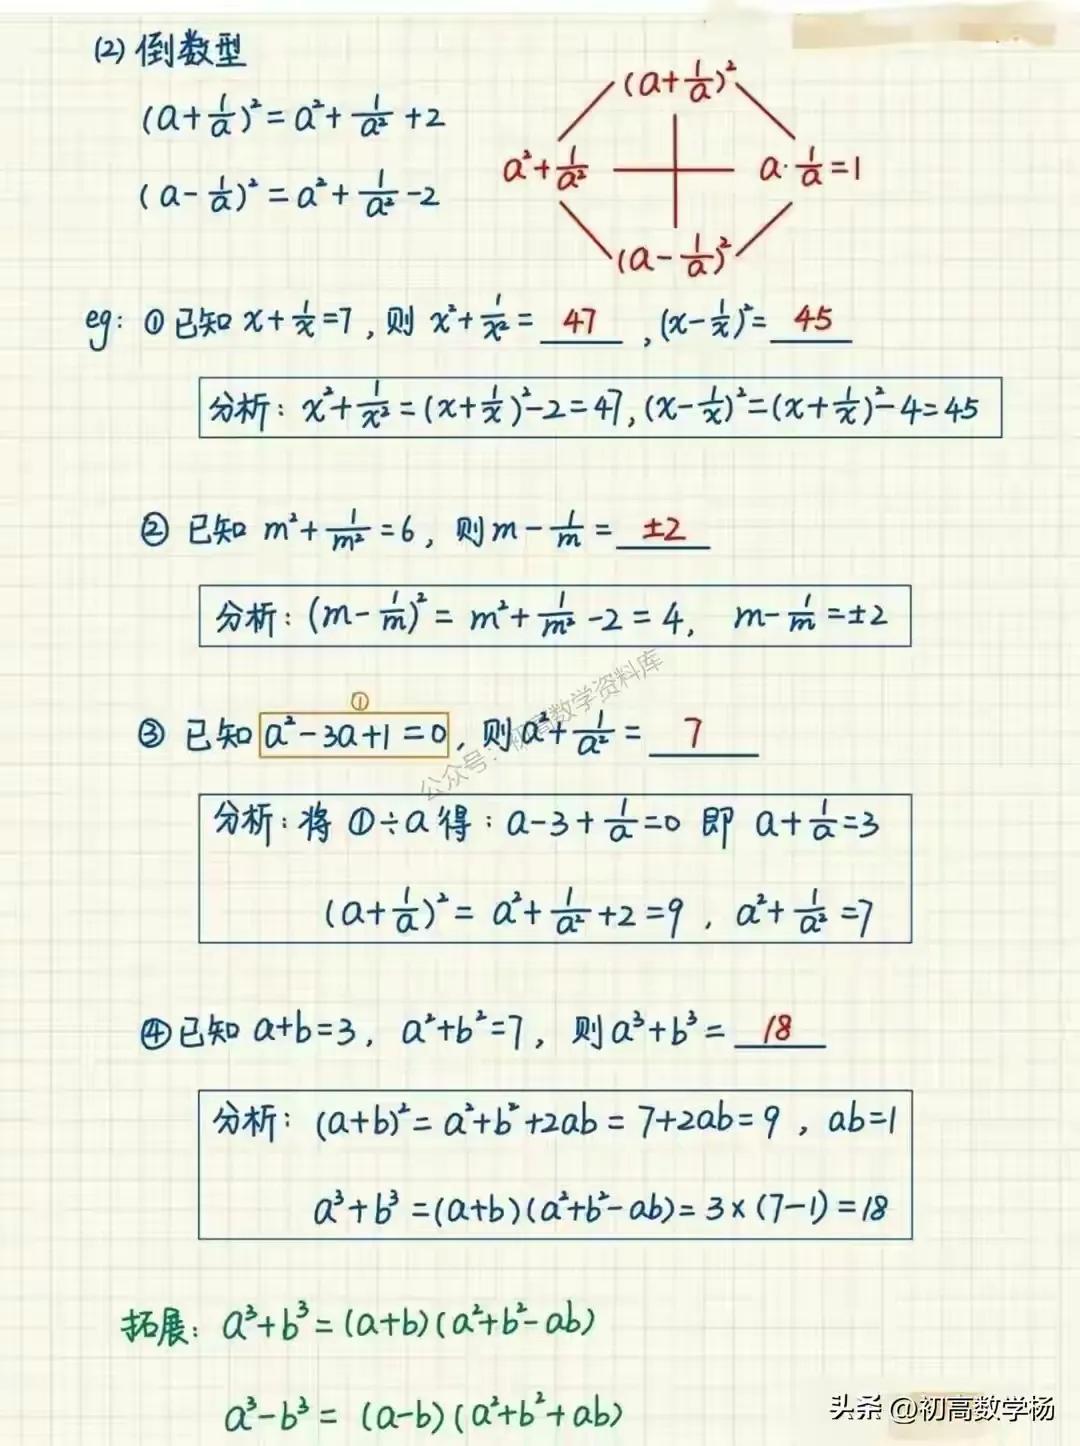 (2) 倒数型
(a+1/a)²=a²+1/a²+2
(a-1/a)²=a²+1/a²-2
(a+1/a)²
a²+1/a²
a·1/a=1
(a-1/a)²
eg: ①已知x+1/x=7,则x²+1/x²=47,(x-1/x)²=45
分析:x²+1/x²=(x+1/x)²-2=47,(x-1/x)²=(x+1/x)²-4=45
② 已知m²+1/m²=6,则m-1/m=±2
分析:(m-1/m)²=m²+1/m²-2=4, m-1/m=±2
①
③ 已知a²-3a+1=0,则a²+1/a²=7
公众号:初高数学资料库
分析:将①÷a得:a-3+1/a=0 即 a+1/a=3
(a+1/a)²=a²+1/a²+2=9,a²+1/a²=7
④已知a+b=3,a²+b²=7,则a³+b³=18
分析:(a+b)²=a²+b²+2ab=7+2ab=9,ab=1
a³+b³=(a+b)(a²+b²-ab)=3×(7-1)=18
拓展:a³+b³=(a+b)(a²+b²-ab)
a³-b³=(a-b)(a²+b²+ab)
头条 @初高数学杨